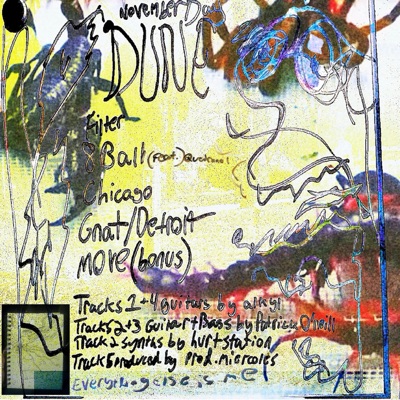 November Dag
DUNE
Filter
8 Ball (feat.)
Chicago
Gnat/Detroit
more (bonus)
Tracks 1+4 guitars by
Tracks 2+3 Guitar + Bass by Patrick O'neill
Track 2 synths by hurtstation
Track 5 produced by Prod.
Everything else is me!